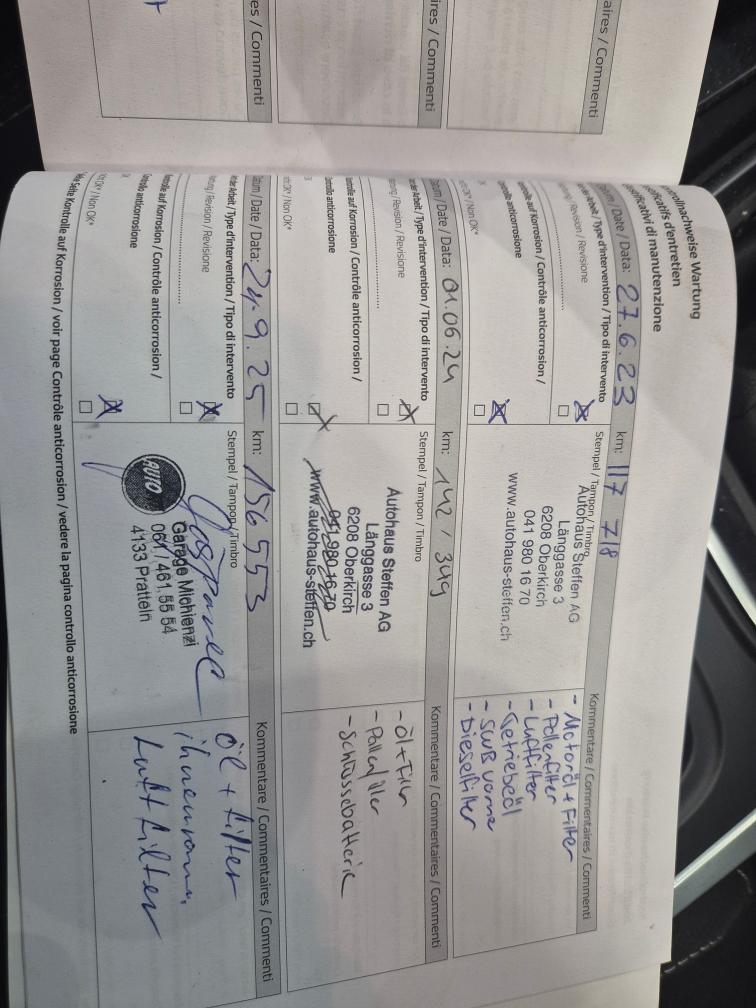 Kontrollnachweise Wartung
d'entretien
di manutenzione
Date / Data: 27.6.23 km: 117 718
/ Type d'intervention / Tipo di intervento
/ Revision / Revisione
Kontrolle auf Korrosion / Contrôle anticorrosion /
anticorrosione
OK* / Non OK*
Stempel / Tampon / Timbro
Autohaus Steffen AG
Länggasse 3
6208 Oberkirch
041 980 16 70
www.autohaus-steffen.ch
Kommentare / Commentaires / Commenti
- Motoröl + Filter
- Pollenfilter
- Luftfilter
- Getriebeöl
- SWB vorne
- Dieselfilter
Datum / Date / Data: 01.06.24 km: 142 / 349
Arbeit / Type d'intervention / Tipo di intervento
/ Revision / Revisione
Kontrolle auf Korrosion / Contrôle anticorrosion /
Controllo anticorrosione
OK* / Non OK*
Stempel / Tampon / Timbro
Autohaus Steffen AG
Länggasse 3
6208 Oberkirch
041 980 16 70
www.autohaus-steffen.ch
Kommentare / Commentaires / Commenti
- Öl + Filter
- Pollenfilter
- Schlüsselbatterie
Datum / Date / Data: 24.9.25 km: 156 553
Arbeit / Type d'intervention / Tipo di intervento
/ Revision / Revisione
Kontrolle auf Korrosion / Contrôle anticorrosion /
Controllo anticorrosione
OK* / Non OK*
Stempel / Tampon / Timbro
AUTO
Garage Michienzi
061 / 461 55 54
4133 Pratteln
Kommentare / Commentaires / Commenti
öl + filter
Luftfilter
Seite Kontrolle auf Korrosion / voir page Contrôle anticorrosion / vedere la pagina controllo anticorrosione
aires / Commenti
ires / Commenti
es / Commenti